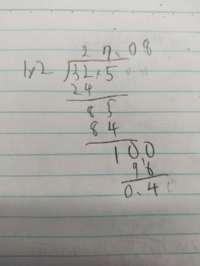 27.08
1.2 32.5
24
85
84
100
96
0.4